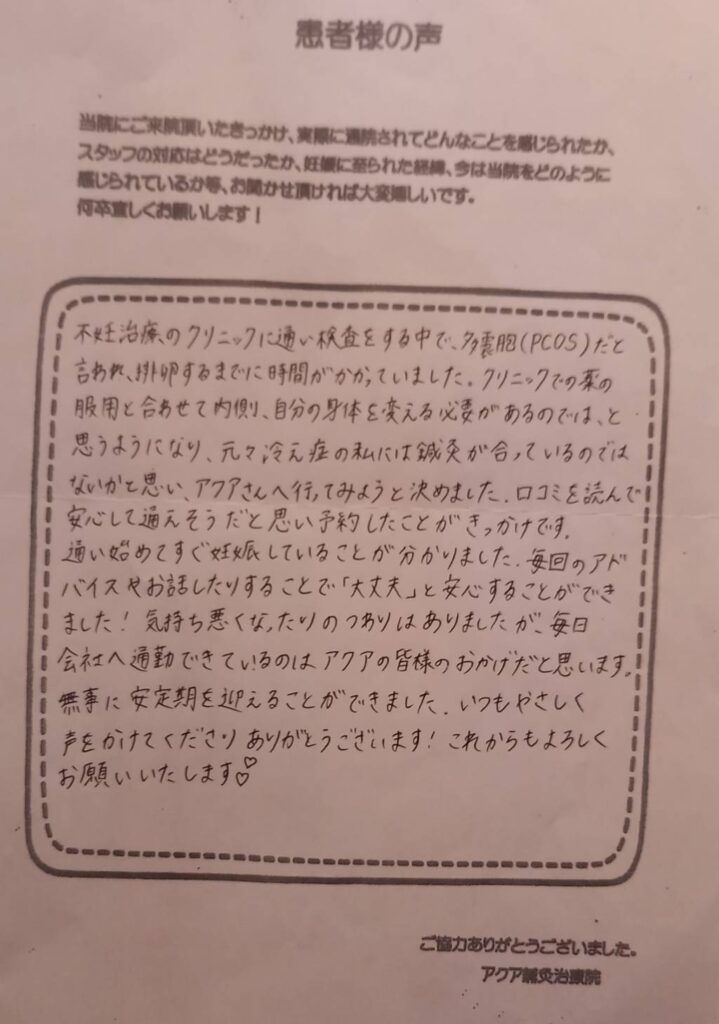 患者様の声
当院にご来院頂いたきっかけ、実際に通院されてどんなことを感じられたか、
スタッフの対応はどうだったか、妊娠に至られた経緯、今は当院をどのように
感じられているか等、お聞かせ頂ければ大変嬉しいです。
何卒宜しくお願いします！
不妊治療のクリニックに通い検査をする中で、多嚢胞(PCOS)だと
言われ、排卵するまでに時間がかかっていました。クリニックでの薬の
服用と合わせて内側、自分の身体を変える必要があるのでは、と
思うようになり、元々冷え症の私には鍼灸が合っているのでは
ないかと思い、アクアさんへ行ってみようと決めました。口コミを読んで
安心して通えそうだと思い予約したことがきっかけです。
通い始めてすぐ妊娠していることが分かりました。毎回のアド
バイスやお話したりすることで「大丈夫」と安心することができ
ました！気持ち悪くなったりのつわりはありましたが、毎日
会社へ通勤できているのはアクアの皆様のおかげだと思います。
無事に安定期を迎えることができました。いつもやさしく
声をかけてくださりありがとうございます！これからもよろしく
お願いいたします♡♡
ご協力ありがとうございました。
アクア鍼灸治療院